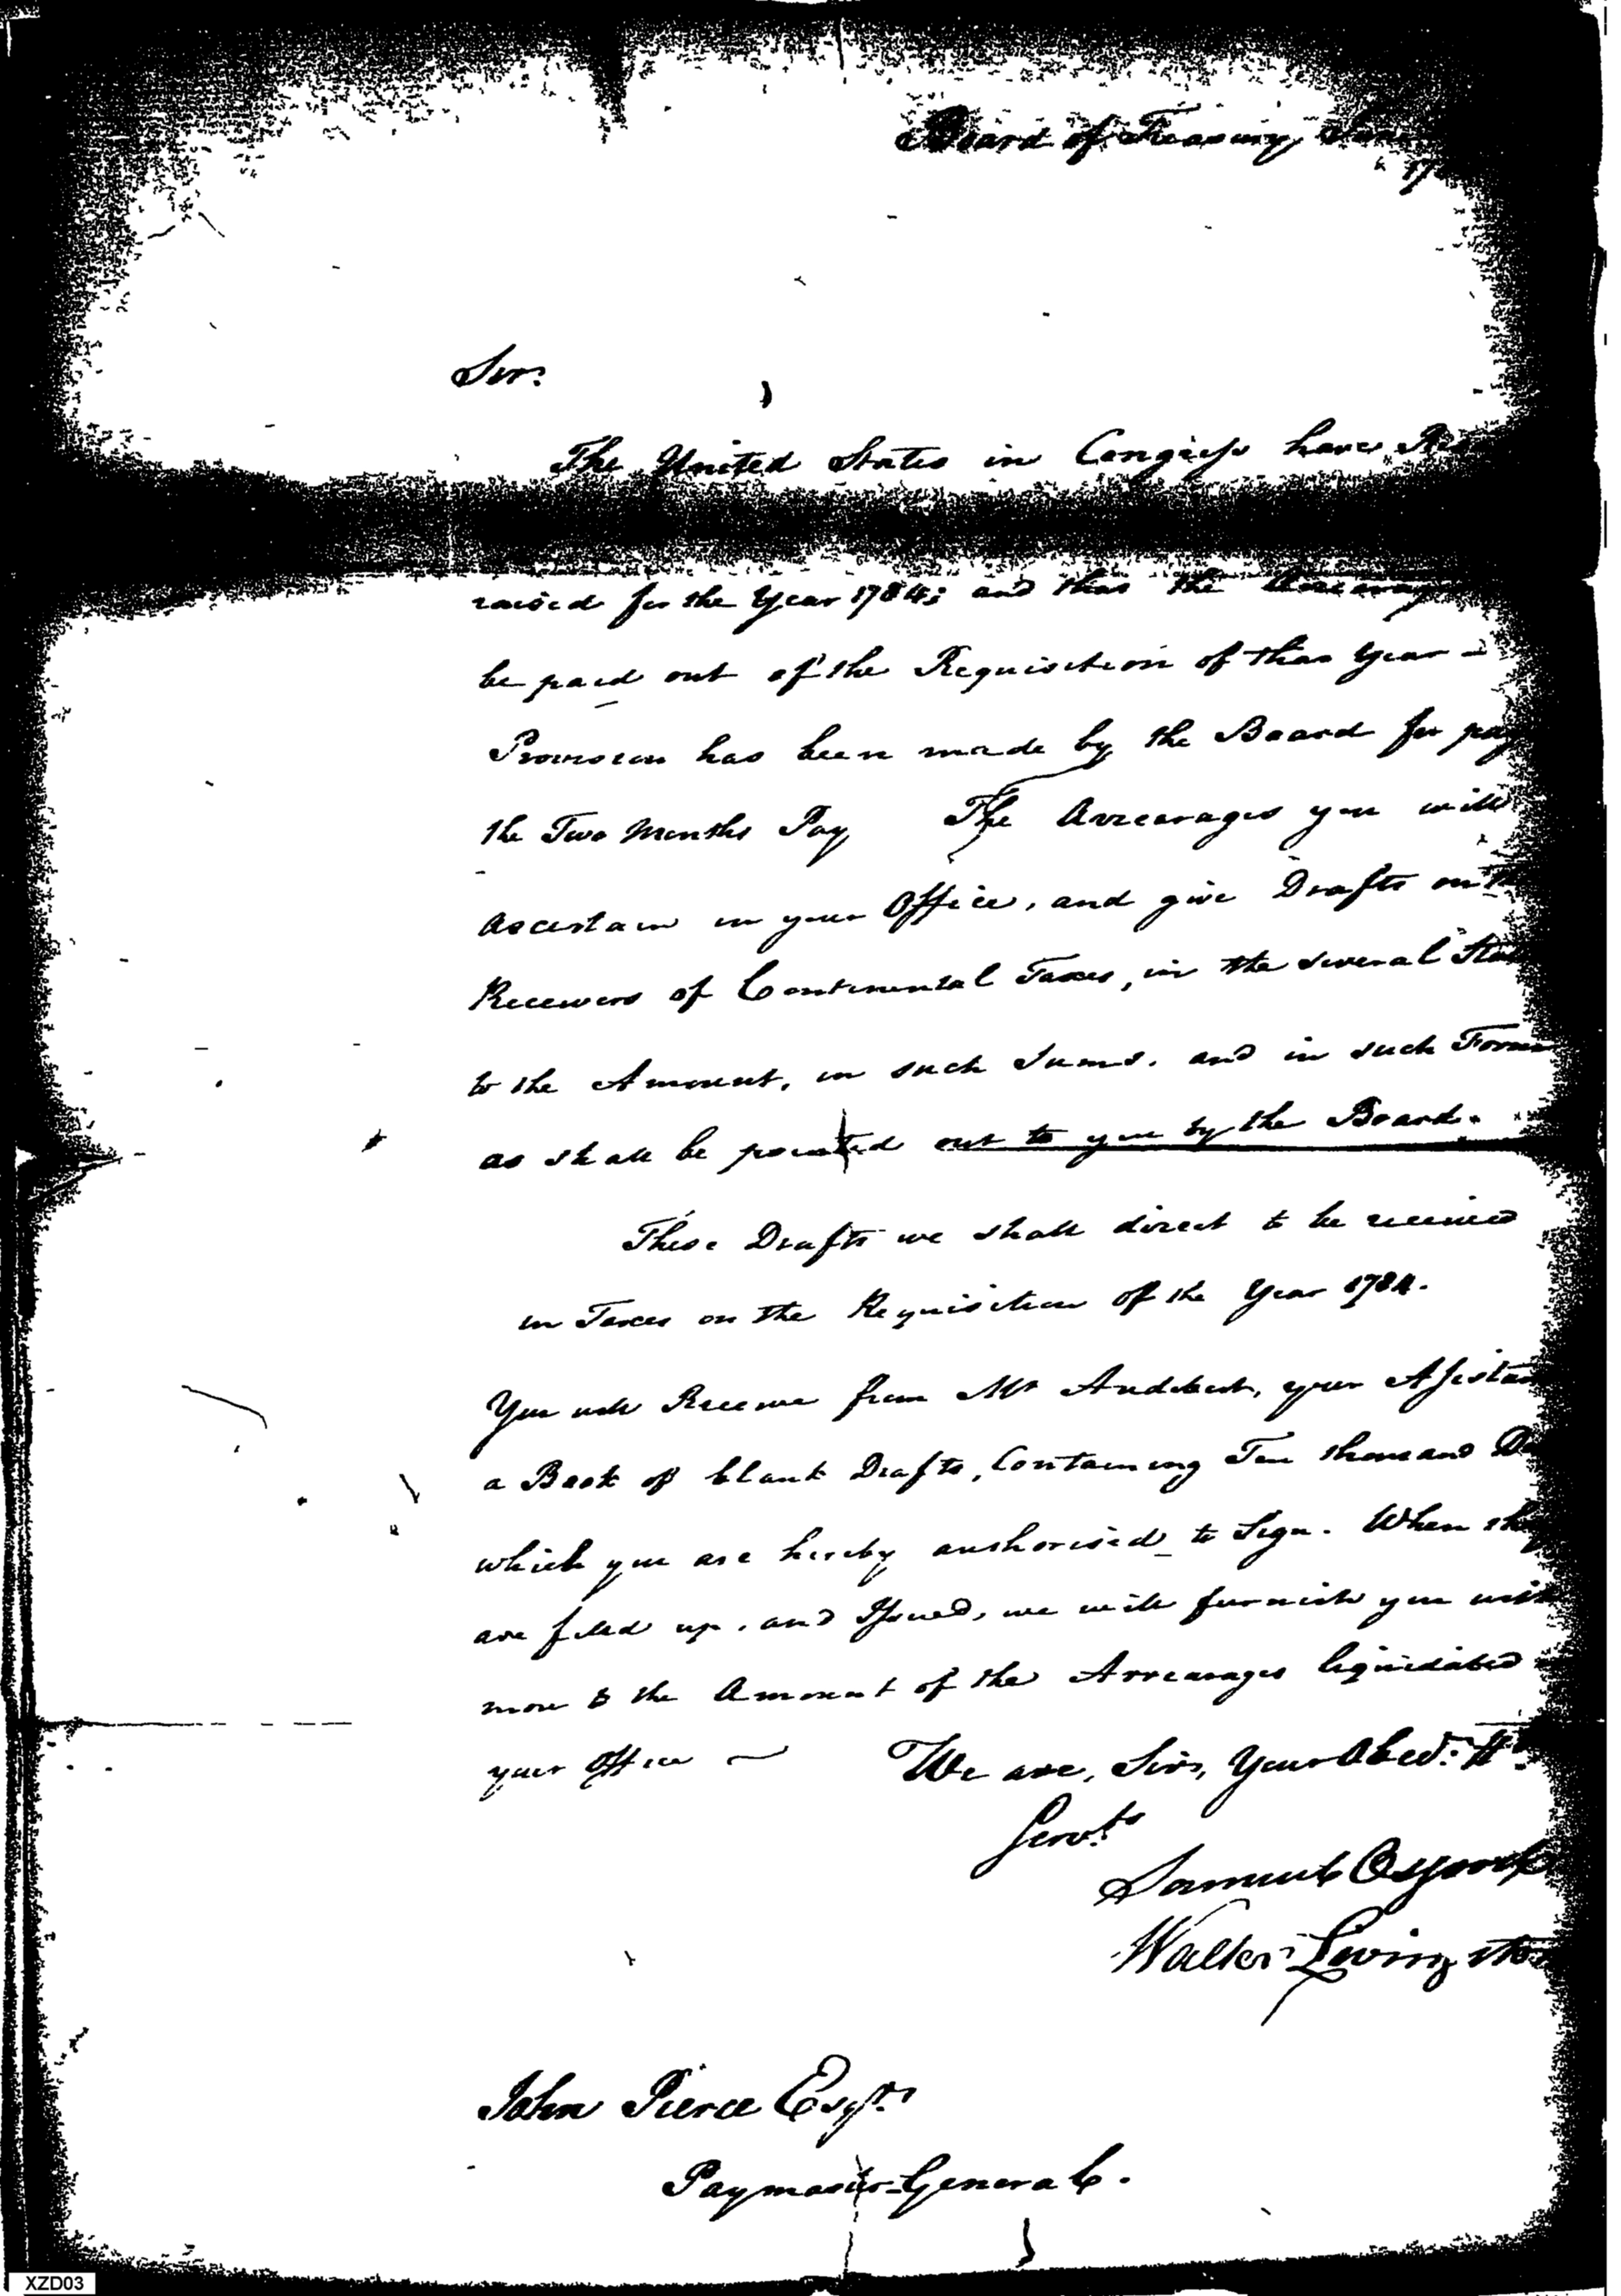 Board of Treasury
17
Sir.
The United States in Congress have
raised for the Year 1784; and that the
be paid out of the Requisition of that Year –
Provision has been made by the Board for
the Two Months Pay The Arrearages you will
ascertain in your Office, and give Drafts on
Receivers of Continental Taxes, in the several
to the Amount, in such Sums, and in such Form
as shall be pointed out to you by the Board.
These Drafts we shall direct to be received
in Taxes on the Requisition of the Year 1784.
You will Receive from Mr Audibert, your
a Book of blank Drafts, Containing Ten thousand
which you are hereby authorised to Sign. When
are filled up, and Issued, we will furnish you with
more to the Amount of the Arrearages liquidated
your Office — We are, Sir, Your Obed.
Servts
Samuel Osgood
Walter Livingston
John Pierce Esqr.
Paymaster-General.
XZD03